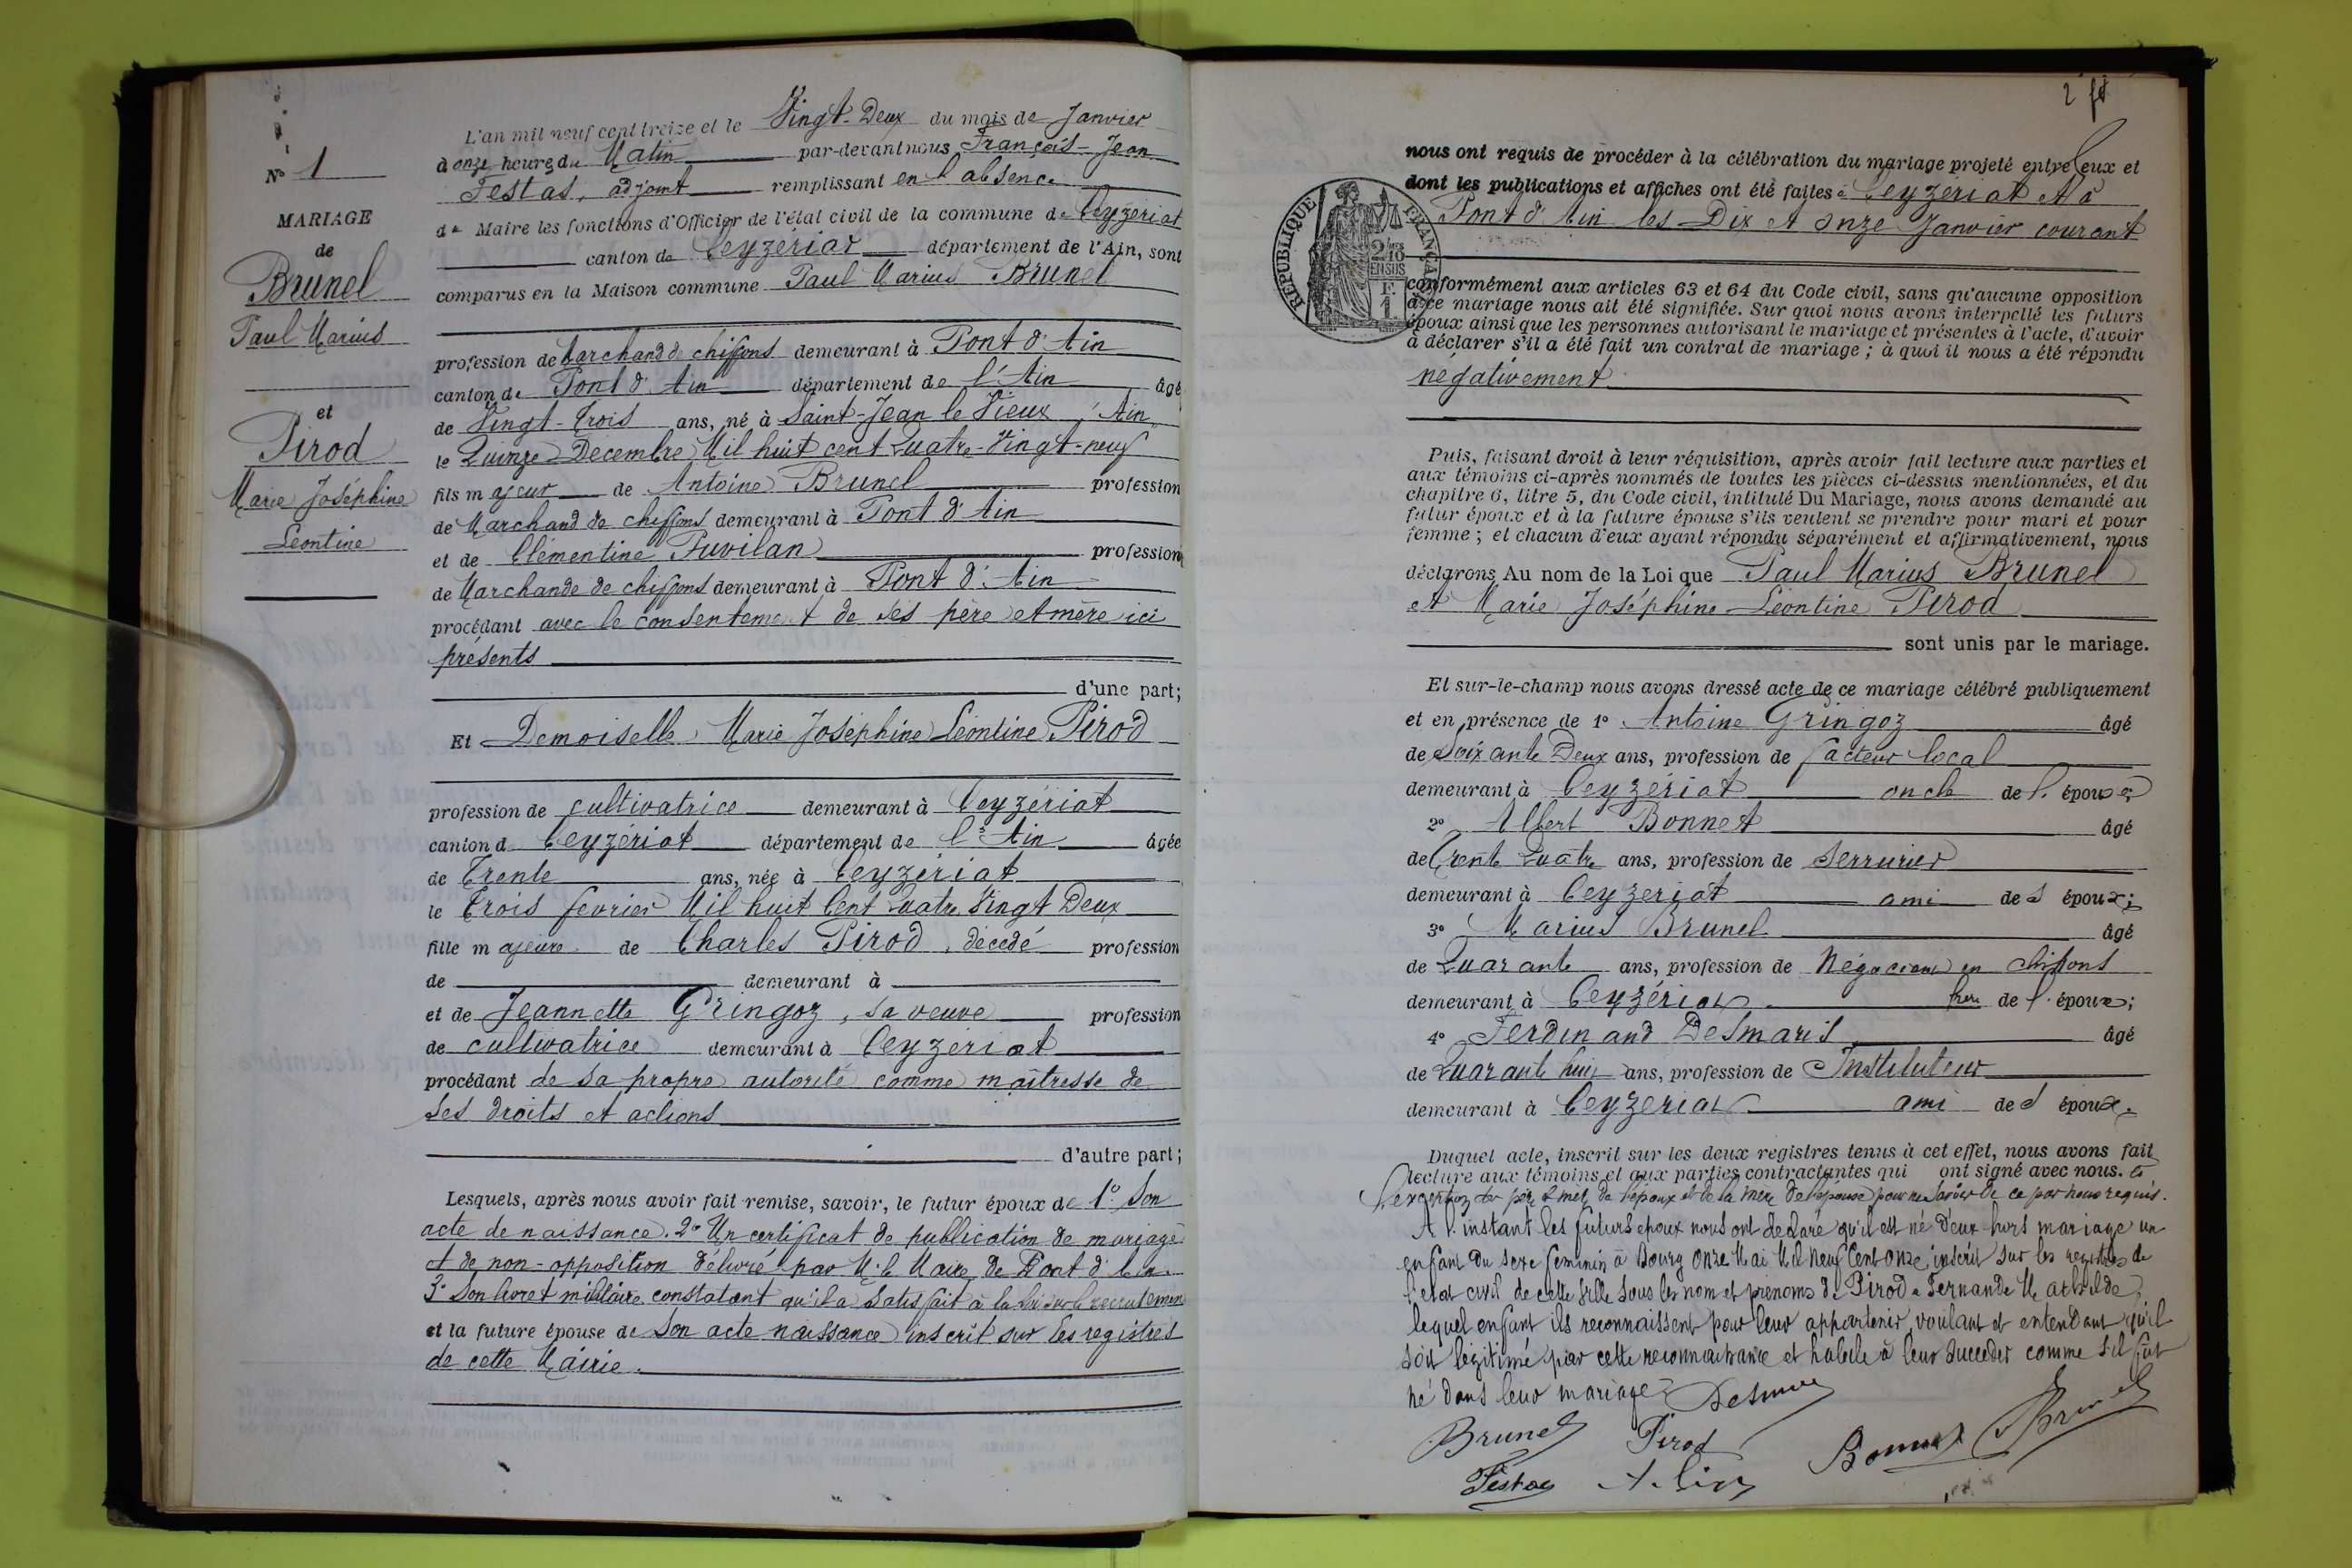 N° 1
MARIAGE
de
Brunel
Paul Marius
et
Pirod
Marie Joséphine
Léontine
L'an mil neuf cent treize et le Vingt-Deux du mois de Janvier
à onze heures du Matin par-devant nous François-Jean
Festas, adjoint remplissant en l'absence
du Maire les fonctions d'Officier de l'état civil de la commune de Ceyzériat
canton de Ceyzériat département de l'Ain, sont
comparus en la Maison commune Paul Marius Brunel
profession de Marchand de chiffons demeurant à Pont d'Ain
canton de Pont d'Ain département de l'Ain âgé
de Vingt-trois ans, né à Saint-Jean le Vieux, Ain,
le Quinze Décembre Mil huit cent Quatre-Vingt-neuf
fils majeur de Antoine Brunel profession
de Marchand de chiffons demeurant à Pont d'Ain
et de Clémentine Puvilan profession
de Marchande de chiffons demeurant à Pont d'Ain
procédant avec le consentement de ses père et mère ici
présents
d'une part;
Et Demoiselle Marie Joséphine Léontine Pirod
profession de cultivatrice demeurant à Ceyzériat
canton de Ceyzériat département de l'Ain âgée
de Trente ans, née à Ceyzériat
le Trois février Mil huit Cent Quatre Vingt Deux
fille majeure de Charles Pirod, décédé profession
de demeurant à
et de Jeannette Gringoz, sa veuve profession
de cultivatrice demeurant à Ceyzériat
procédant de sa propre autorité comme maîtresse de
ses droits et actions
d'autre part;
Lesquels, après nous avoir fait remise, savoir, le futur époux de 1° Son
acte de naissance. 2° Un certificat de publication de mariage
et de non-opposition délivré par M. le Maire de Pont d'Ain.
3° Son livret militaire constatant qu'il a satisfait à la loi sur le recrutement
et la future épouse de Son acte naissance inscrit sur les registres
de cette Mairie.
2
nous ont requis de procéder à la célébration du mariage projeté entre eux et
dont les publications et affiches ont été faites à Ceyzériat et à
Pont d'Ain les Dix et onze Janvier courant
RÉPUBLIQUE FRANÇAISE
2/10
EN SUS
F. 1
conformément aux articles 63 et 64 du Code civil, sans qu'aucune opposition
à ce mariage nous ait été signifiée. Sur quoi nous avons interpellé les futurs
époux ainsi que les personnes autorisant le mariage et présentes à l'acte, d'avoir
à déclarer s'il a été fait un contrat de mariage; à quoi il nous a été répondu
négativement
Puis, faisant droit à leur réquisition, après avoir fait lecture aux parties et
aux témoins ci-après nommés de toutes les pièces ci-dessus mentionnées, et du
chapitre 6, titre 5, du Code civil, intitulé Du Mariage, nous avons demandé au
futur époux et à la future épouse s'ils veulent se prendre pour mari et pour
femme; et chacun d'eux ayant répondu séparément et affirmativement, nous
déclarons Au nom de la Loi que Paul Marius Brunel
et Marie Joséphine Léontine Pirod
sont unis par le mariage.
Et sur-le-champ nous avons dressé acte de ce mariage célébré publiquement
et en présence de 1° Antoine Gringoz âgé
de Soixante Deux ans, profession de facteur local
demeurant à Ceyzériat oncle de l'épouse;
2° Albert Bonnet âgé
de Trente Quatre ans, profession de serrurier
demeurant à Ceyzériat ami des époux;
3° Marius Brunel âgé
de Quarante ans, profession de Négociant en chiffons
demeurant à Ceyzériat frère de l'époux;
4° Ferdinand Desmaris âgé
de Quarante huit ans, profession de Instituteur
demeurant à Ceyzériat ami des époux.
Duquel acte, inscrit sur les deux registres tenus à cet effet, nous avons fait
lecture aux témoins et aux parties contractantes qui ont signé avec nous. à
l'exception des père & mère de l'époux et de la mère de l'épouse pour ne savoir de ce par nous requis.
A l'instant les futurs époux nous ont déclaré qu'il est né d'eux hors mariage un
enfant du sexe féminin à Bourg onze Mai Mil Neuf Cent onze inscrit sur les registres de
l'état civil de cette ville sous les nom et prénoms de Pirod Fernande Mathilde,
lequel enfant ils reconnaissent pour leur appartenir, voulant et entendant qu'il
soit légitimé par cette reconnaissance et habile à leur succéder comme s'il fût
né dans leur mariage
Brunel Pirod Bonnet Brunel
Festas